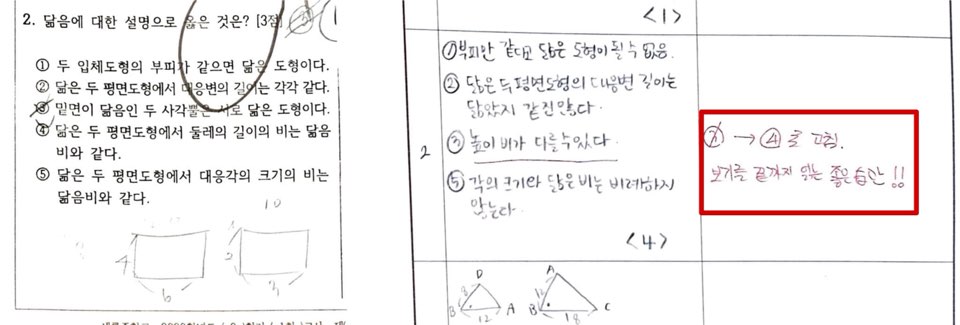 2. 닮음에 대한 설명으로 옳은 것은? [3점]
① 두 입체도형의 부피가 같으면 닮은 도형이다.
② 닮은 두 평면도형에서 대응변의 길이는 각각 같다.
③ 밑면이 닮음인 두 사각뿔은 서로 닮은 도형이다.
④ 닮은 두 평면도형에서 둘레의 길이의 비는 닮음
비와 같다.
⑤ 닮은 두 평면도형에서 대응각의 크기의 비는
닮음비와 같다.
10
4
6
2
3
<1>
2
① 부피만 같다고 닮은 도형이 될 수 없음.
② 닮은 두 평면도형의 대응변 길이는
닮았지 같진 않다.
③ 높이 비가 다를 수 있다.
⑤ 각의 크기와 닮은 비는 비례하지
않는다.
<4>
→ ④로 고침.
보기를 끝까지 읽는 좋은 습관!!
D
8
B
12
A
A
12
B
18
C